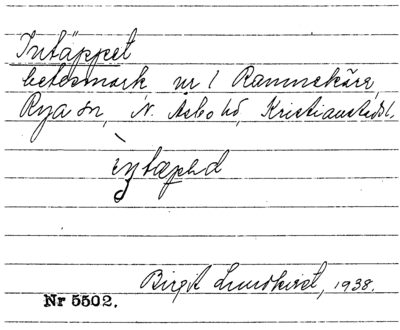 Intäppet
betesmark, nr 1 Rammekärr,
Rya sn, N. Åsbo hd, Kristianstads l.
Birgit Lundkvist, 1938.
Nr 5502.